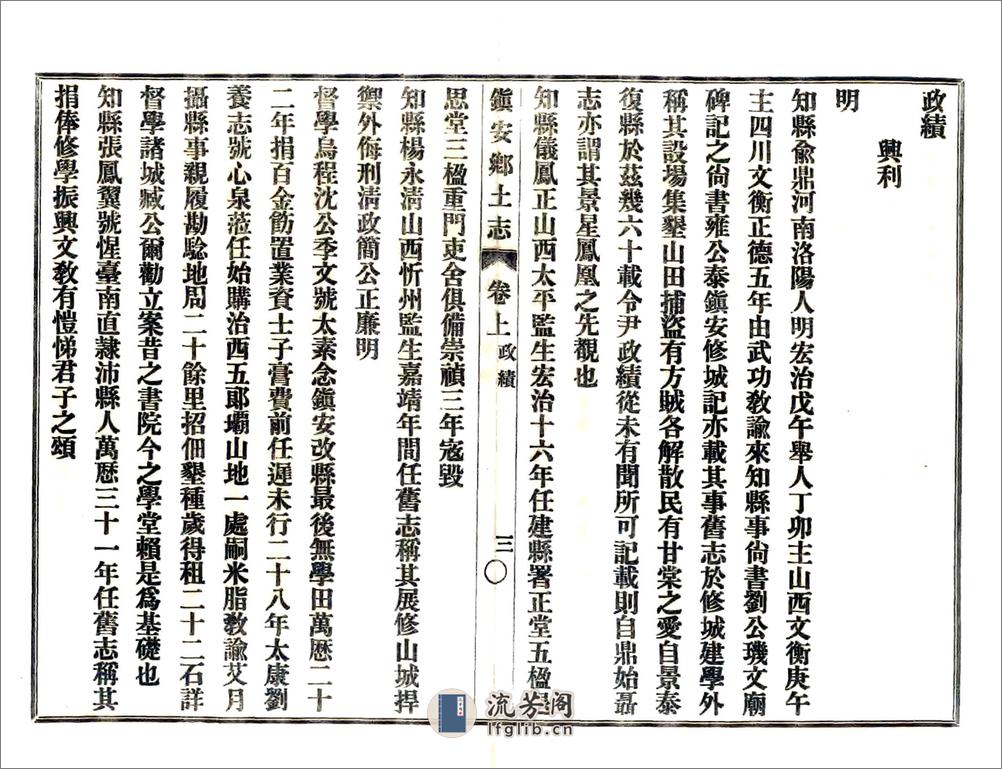 政績
興利
明
知縣兪鼎河南洛陽人明宏治戊午舉人丁卯主山西文衡庚午
主四川文衡正德五年由武功敎諭來知縣事尙書劉公璣文廟
碑記之尙書雍公泰鎭安修城記亦載其事舊志於修城建學外
稱其設場集墾山田捕盜有方賊各解散民有甘棠之愛自景泰
復縣於茲幾六十載令尹政績從未有聞所可記載則自鼎始聶
志亦謂其景星鳳凰之先覩也
知縣儀鳳正山西太平監生宏治十六年任建縣署正堂五楹
鎭安鄕土志 卷上 政績 三
思堂三楹重門吏舍俱備崇禎三年寇毀
知縣楊永淸山西忻州監生嘉靖年間任舊志稱其展修山城捍
禦外侮刑淸政簡公正廉明
督學烏程沈公季文號太素念鎭安改縣最後無學田萬歷二十
二年捐百金飭置業資士子膏費前任遲未行二十八年太康劉
養志號心泉蒞任始購治西五郞壩山地一處嗣米脂敎諭艾月
攝縣事親履勘騐地周二十餘里招佃墾種歲得租二十二石詳
督學諸城臧公爾勸立案昔之書院今之學堂賴是爲基礎也
知縣張鳳翼號惺臺南直隷沛縣人萬歷三十一年任舊志稱其
捐俸修學振興文敎有愷悌君子之頌
流芳阁
lfglib.cn